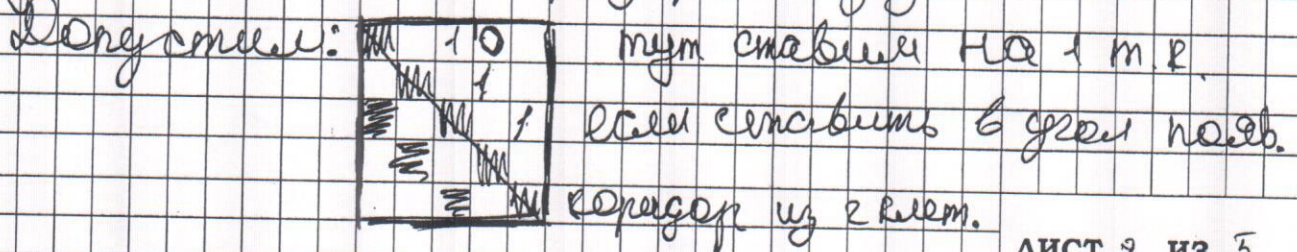 Допустим: 1 0 тут ставим на 1 т.к.
1
1 если ставить в угол появ.
коридор из 2 клет.
лист 2 из 5